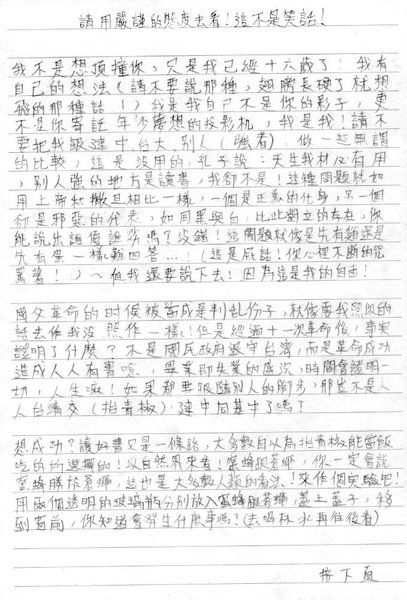 請用嚴謹的態度去看!這不是笑話!
我不是想頂撞你,只是我已經十六歲了!我有
自己的想法(請不要說那種,翅膀長硬了就想
飛的那種話!)我是我自己不是你的影子,更
不是你寄託年少夢想的投影机,我是我!請不
要把我跟建中台大別人(強者)做一些無謂
的比較,這是沒用的,孔子說:天生我材必有用
,別人強的地方是讀書,我卻不是!這種問題就如
用上帝和撒旦相比一樣,一個是正義的化身,另一個
卻是邪惡的代表,如同黑與白,比此對立的存在,你
能說出誰優誰劣嗎?沒錯!這問題就像是先有雞還是
先有蛋一樣,難回答…!(這是屁話!你心裡不斷的咒
罵著!)~但我還要說下去!因為這是我的自由!
國父革命的时候被當成是判亂份子,就像要我照你的
話去做我沒照作一樣!但是經過十一次革命後,事实
證明了什麼?不是國民政府退守台灣,而是革命成功
造成人人有書唸,畢業即失業的盛況,時間會證明一
切,人生啦!如果都要跟隨別人的腳步,那豈不是人
人台清交(指青椒),建中同萁牛了嗎?
想成功?讀好書又是一條路,大多數自以為指青椒能當飯
吃的所選擇的!以自然界來看!蜜蜂跟蒼蠅,你一定會說
蜜蜂勝於蒼蠅,這也是大多數人類的看法!來作個实驗吧!
用兩個透明的玻璃瓶分別放入蜜蜂跟蒼蠅,蓋上蓋子,移
到窗前,你知道會發生什麼事嗎?(去喝杯水再往後看)
按下頁